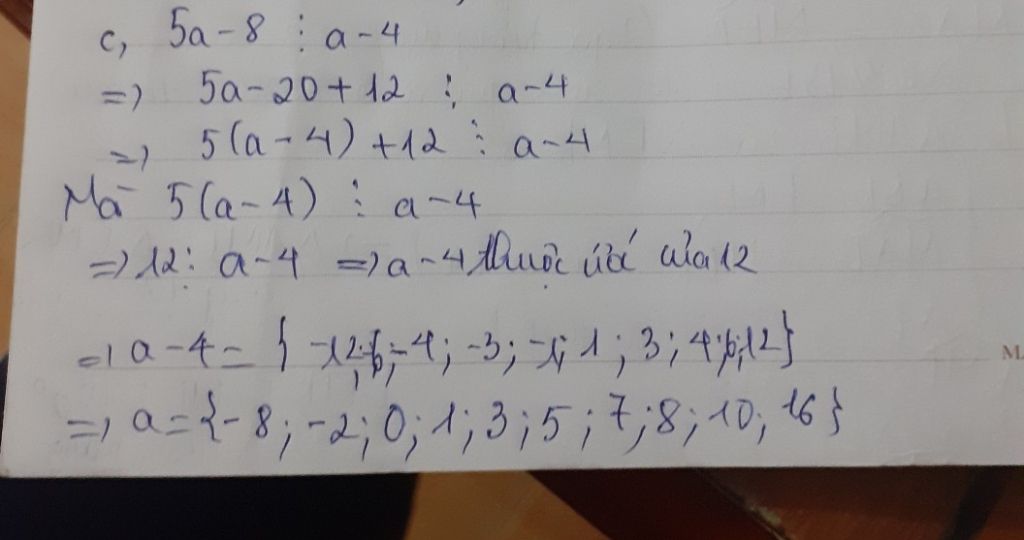 c, 5a-8 ⋮ a-4
=> 5a-20+12 ⋮ a-4
=> 5(a-4)+12 ⋮ a-4
Mà 5(a-4) ⋮ a-4
=> 12 ⋮ a-4 => a-4 thuộc ước của 12
=> a-4 = { -12; -6; -4; -3; -1; 1; 3; 4; 6; 12}
=> a = {-8; -2; 0; 1; 3; 5; 7; 8; 10; 16}